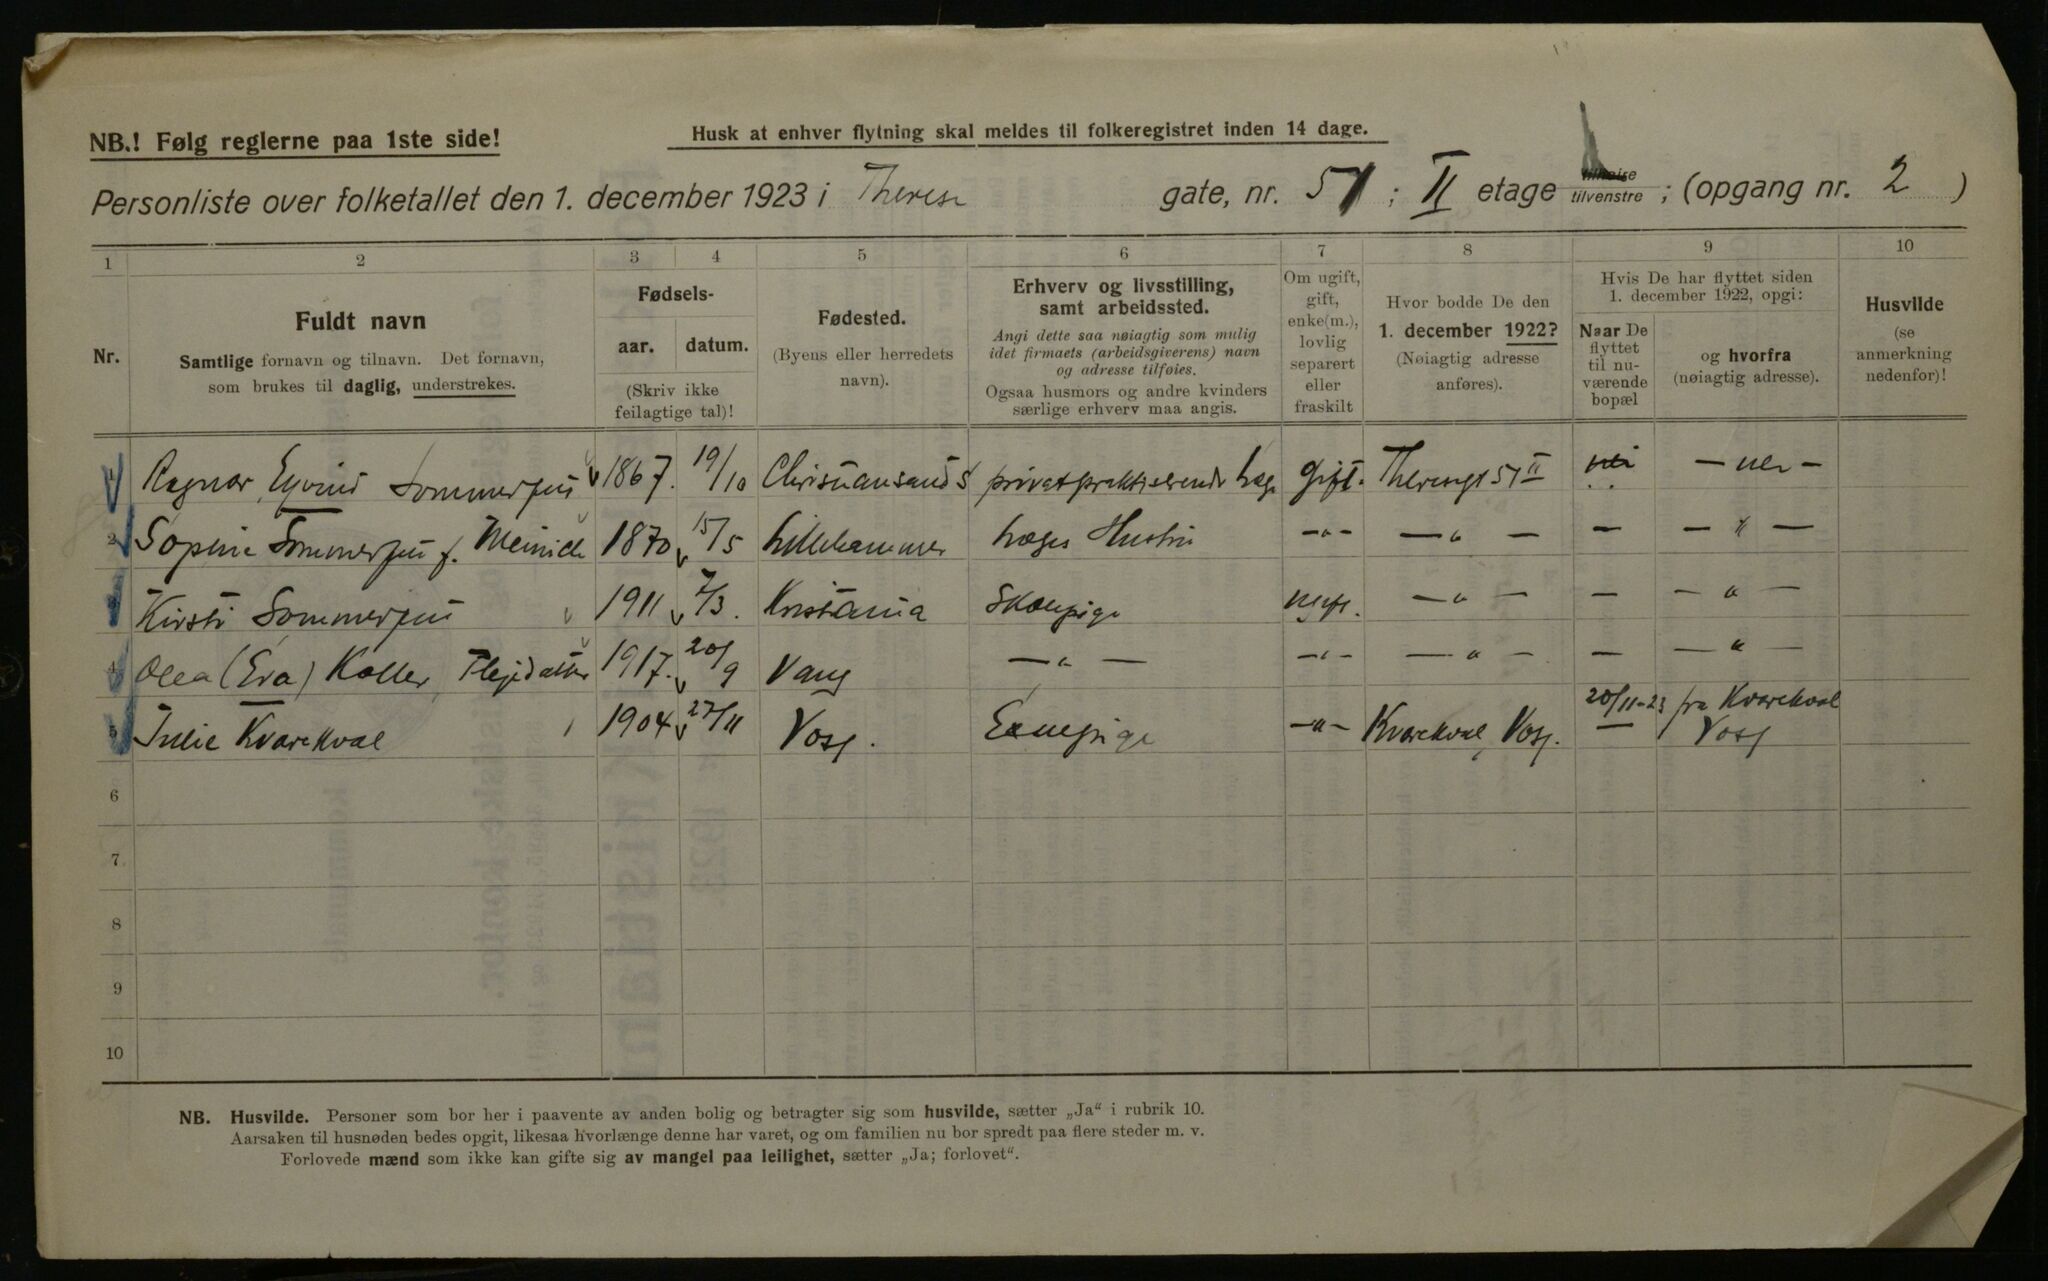 NB.! Følg reglerne paa 1ste side!
Husk at enhver flytning skal meldes til folkeregistret inden 14 dage.
Personliste over folketallet den 1. december 1923 i Therese gate, nr. 51; II etage tilhøire tilvenstre; (opgang nr. 2)
1 2 3 4 5 6 7 8 9 10
Nr.
Fuldt navn
Samtlige fornavn og tilnavn. Det fornavn,
som brukes til daglig, understrekes.
Fødsels-
aar. datum.
(Skriv ikke
feilagtige tal)!
Fødested.
(Byens eller herredets
navn).
Erhverv og livsstilling,
samt arbeidssted.
Angi dette saa nøiagtig som mulig
idet firmaets (arbeidsgiverens) navn
og adresse tilføies.
Ogsaa husmors og andre kvinders
særlige erhverv maa angis.
Om ugift,
gift,
enke(m.),
lovlig
separert
eller
fraskilt
Hvor bodde De den
1. december 1922?
(Nøiagtig adresse
anføres).
Hvis De har flyttet siden
1. december 1922, opgi:
Naar De
flyttet
til nu-
værende
bopæl
og hvorfra
(nøiagtig adresse).
Husvilde
(se
anmerkning
nedenfor)!
1 Ragnar Eyvind 1867. 19/10 Christiansand S privatpraktiserende Læge gift. Theresgt 51 II nei — nei —
2 1870 15/5 Lillehammer Læges Hustru —„— —„— — —„—
3 Kirsti 1911 7/3. Kristiania Skolepige ugift. —„— — —„—
4 Olea (Eva) Koller, Plejedatter 1917. 20/9 Vang —„— —„— —„— — —„—
5 Julie Kvarekval 1904 27/11 Voss. —„— Kvarekval, Voss. 20/11-23 — fra Kvarekval Voss
6
7
8
9
10
NB. Husvilde. Personer som bor her i paavente av anden bolig og betragter sig som husvilde, sætter „Ja“ i rubrik 10.
Aarsaken til husnøden bedes opgit, likesaa hvorlænge denne har varet, og om familien nu bor spredt paa flere steder m. v.
Forlovede mænd som ikke kan gifte sig av mangel paa leilighet, sætter „Ja; forlovet“.